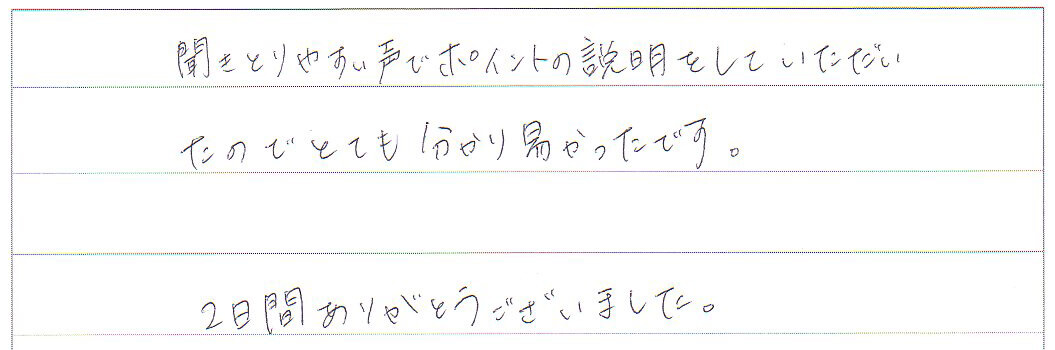 聞きとりやすい声でポイントの説明をしていただい
たのでとても分かり易かったです。
2日間ありがとうございました。